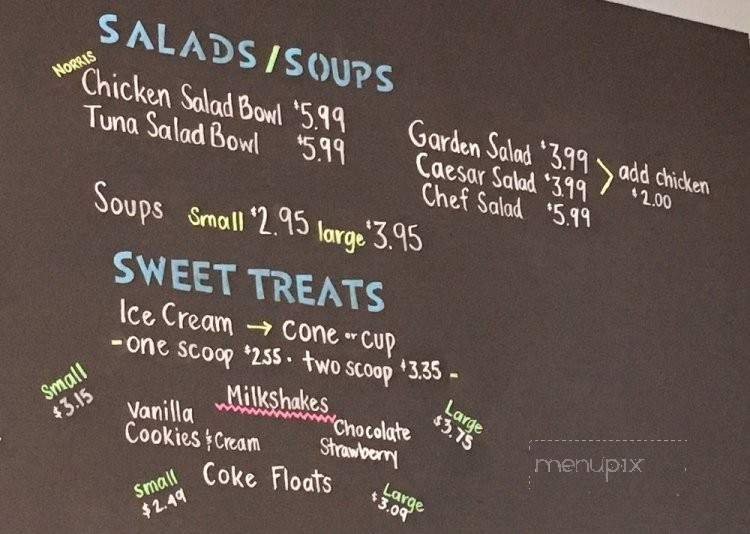 SALADS/SOUPS
NORRIS
Chicken Salad Bowl $5.99
Tuna Salad Bowl $5.99
Garden Salad $3.99
Caesar Salad $3.99
add chicken
$2.00
Chef Salad $5.99
Soups small $2.95 large $3.95
SWEET TREATS
Ice Cream → cone or cup
-one scoop $2.55 · two scoop $3.35 -
Small
$3.15
Milkshakes
Large
$3.75
Vanilla
Chocolate
Cookies & Cream
Strawberry
Coke Floats
Small
$2.49
Large
$3.09
menupix